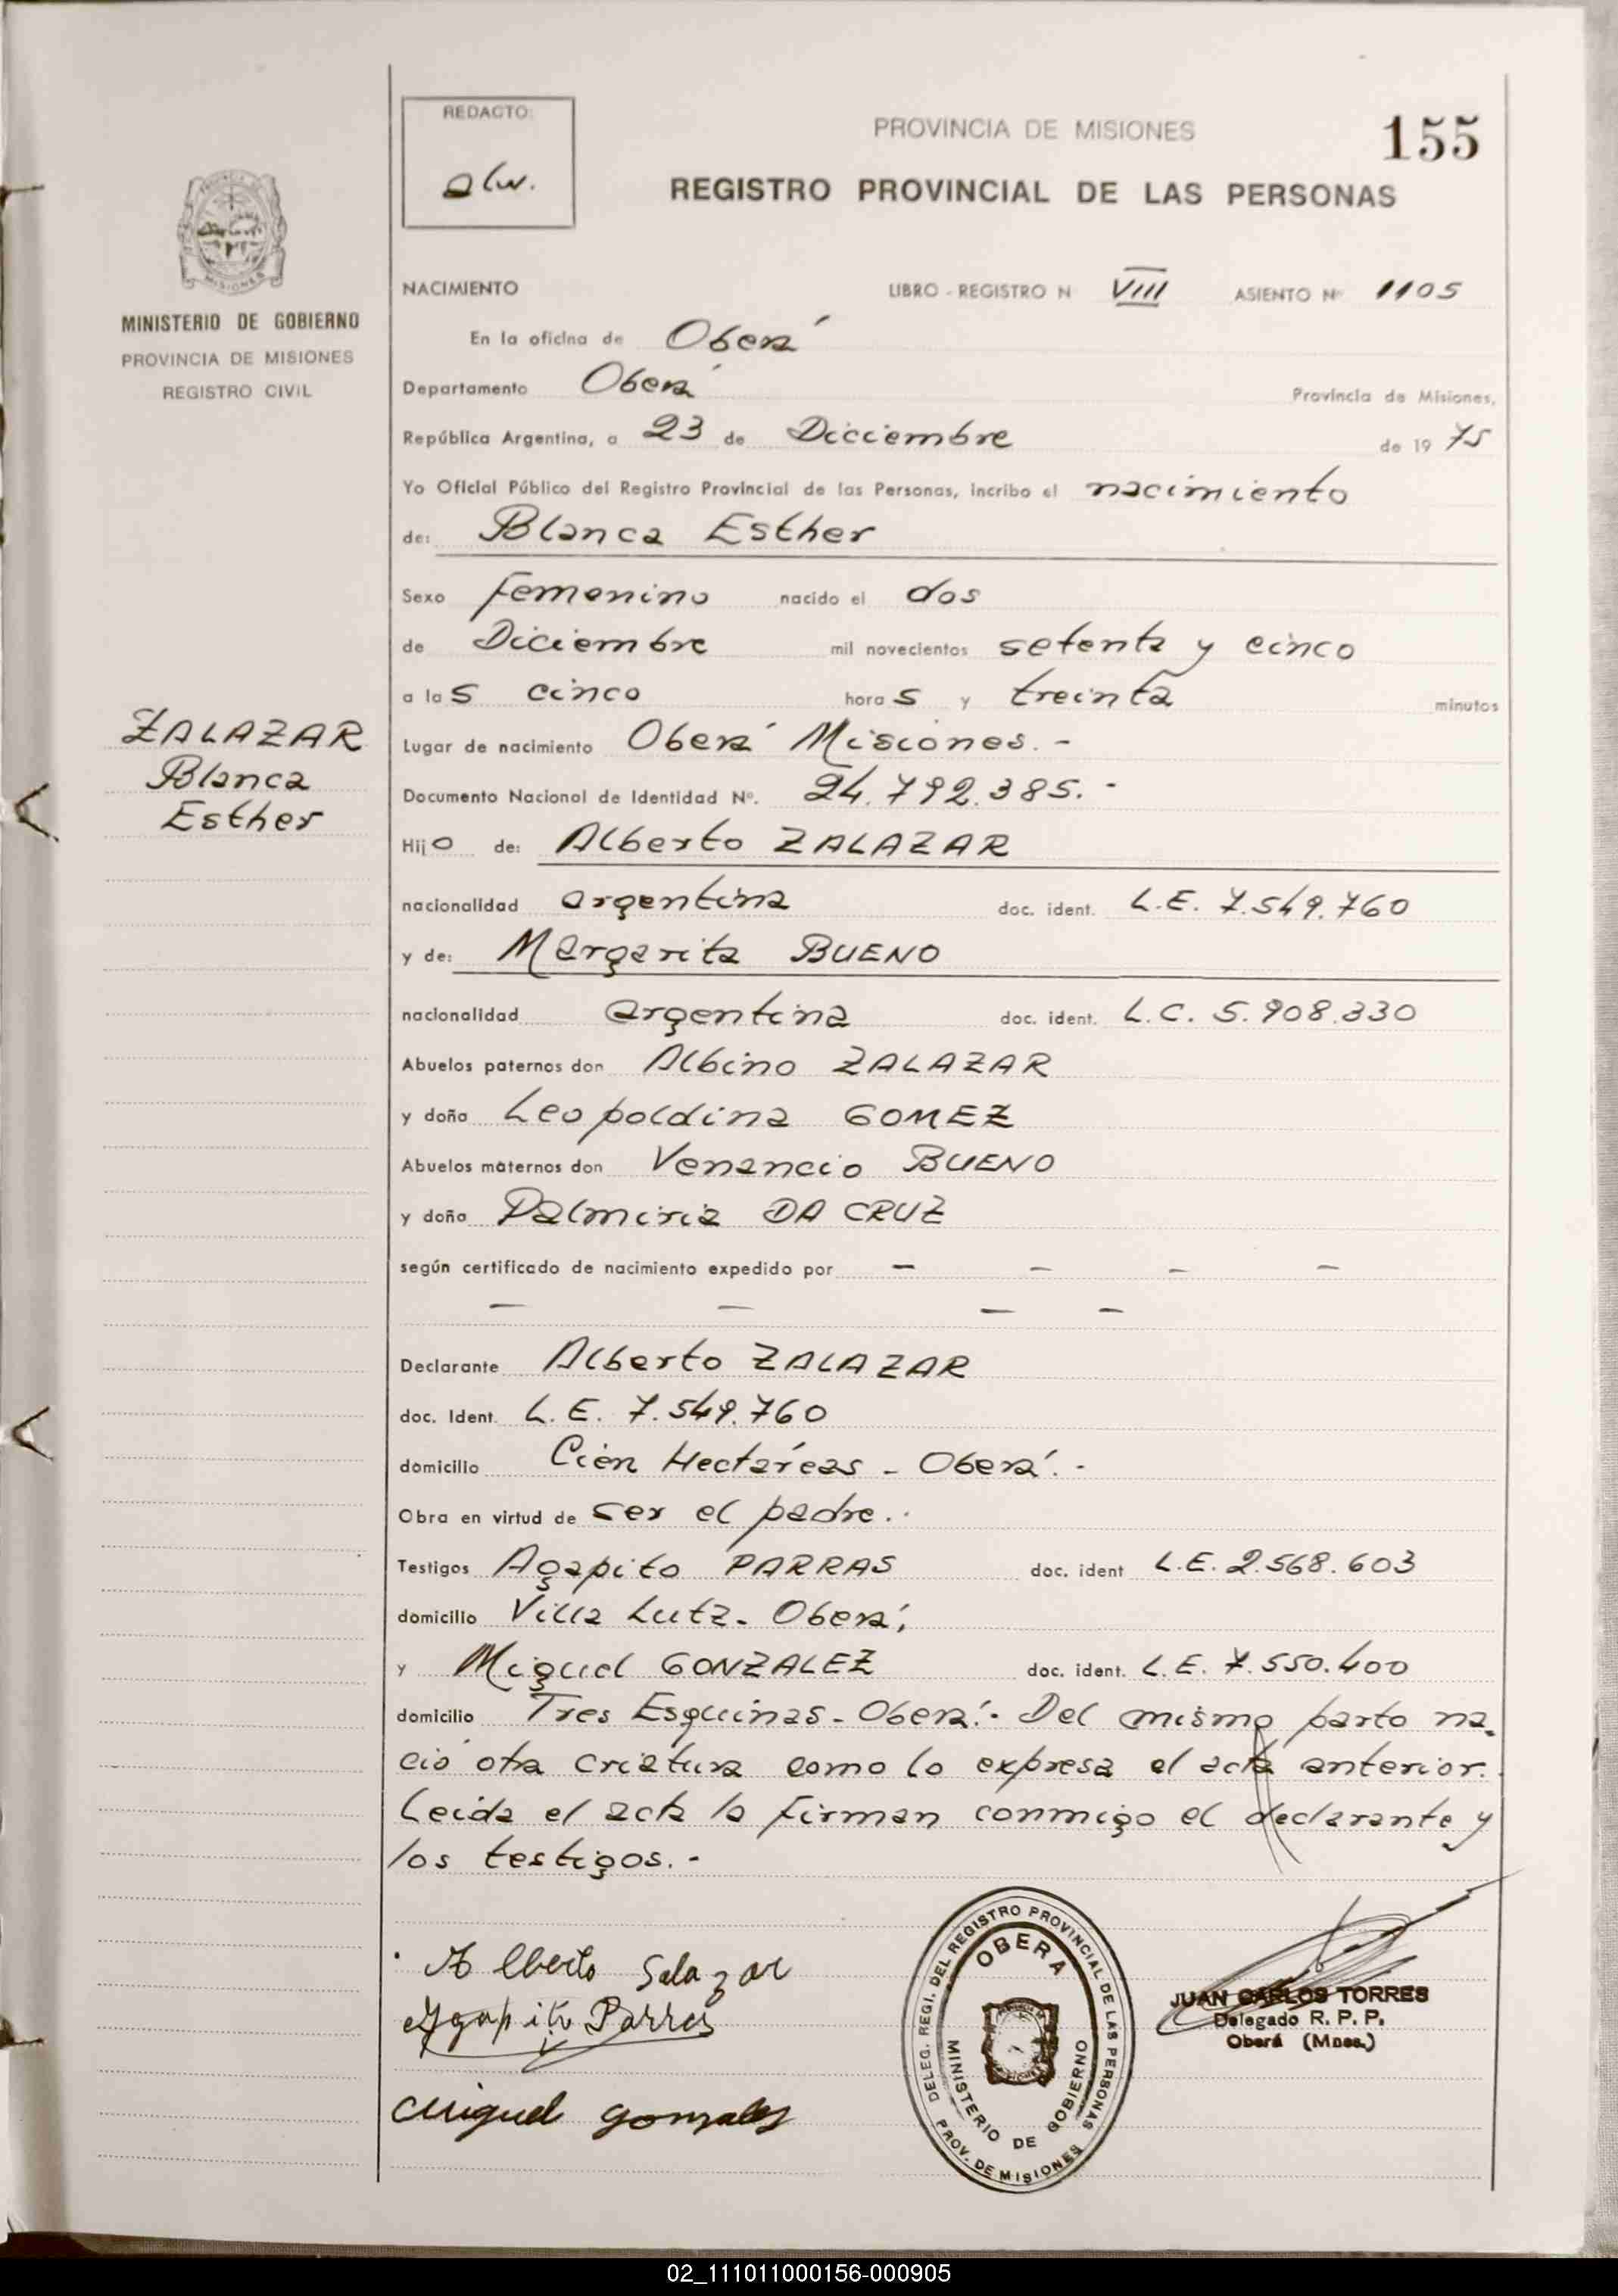 REDACTO:
alw.
PROVINCIA DE MISIONES
155
REGISTRO PROVINCIAL DE LAS PERSONAS
MISIONES
MINISTERIO DE GOBIERNO
PROVINCIA DE MISIONES
REGISTRO CIVIL
NACIMIENTO LIBRO - REGISTRO N VIII ASIENTO Nº 1105
En la oficina de Oberá
Departamento Oberá Provincia de Misiones,
República Argentina, a 23 de Dicciembre de 19 75
Yo Oficial Público del Registro Provincial de las Personas, incribo el nacimiento
de: Blanca Esther
Sexo femenino nacido el dos
de Diciembre mil novecientos setenta y cinco
a las cinco horas y treinta minutos
ZALAZAR
Blanca
Esther
Lugar de nacimiento Oberá Misiones.-
Documento Nacional de Identidad Nº. 24.792.385.-
Hijo de: Alberto ZALAZAR
nacionalidad argentina doc. ident. L.E. 7.549.760
y de: Margarita BUENO
nacionalidad argentina doc. ident. L.C. 5.908.330
Abuelos paternos don Albino ZALAZAR
y doña Leopoldina GOMEZ
Abuelos maternos don Venancio BUENO
y doña Palmiria DA CRUZ
según certificado de nacimiento expedido por - - - -
- - - -
Declarante Alberto ZALAZAR
doc. Ident. L.E. 7.549.760
domicilio Cien Hectáreas - Oberá.-
Obra en virtud de ser el padre..
Testigos Agapito PARRAS doc. ident L.E. 2.568.603
domicilio Villa Lutz- Oberá,
y Miguel GONZALEZ doc. ident. L.E. 7.550.400
domicilio Tres Esquinas - Oberá.- Del mismo parto na-
ció otra criatura como lo expresa el acta anterior.
Leída el acta la firman conmigo el declarante y
los testigos.-
Alberto Salazar
Agapito Parras
Miguel Gonzales
DELEG. REGI. DEL REGISTRO PROVINCIAL DE LAS PERSONAS
OBERA
MINISTERIO DE GOBIERNO
PROV. DE MISIONES
JUAN CARLOS TORRES
Delegado R. P. P.
Oberá (Mnes.)
02_111011000156-000905